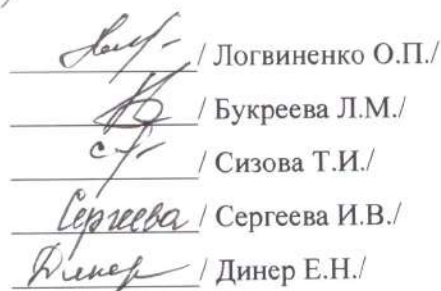 / Логвиненко О.П./
/ Букреева Л.М./
/ Сизова Т.И./
Сергеева / Сергеева И.В./
Динер / Динер Е.Н./